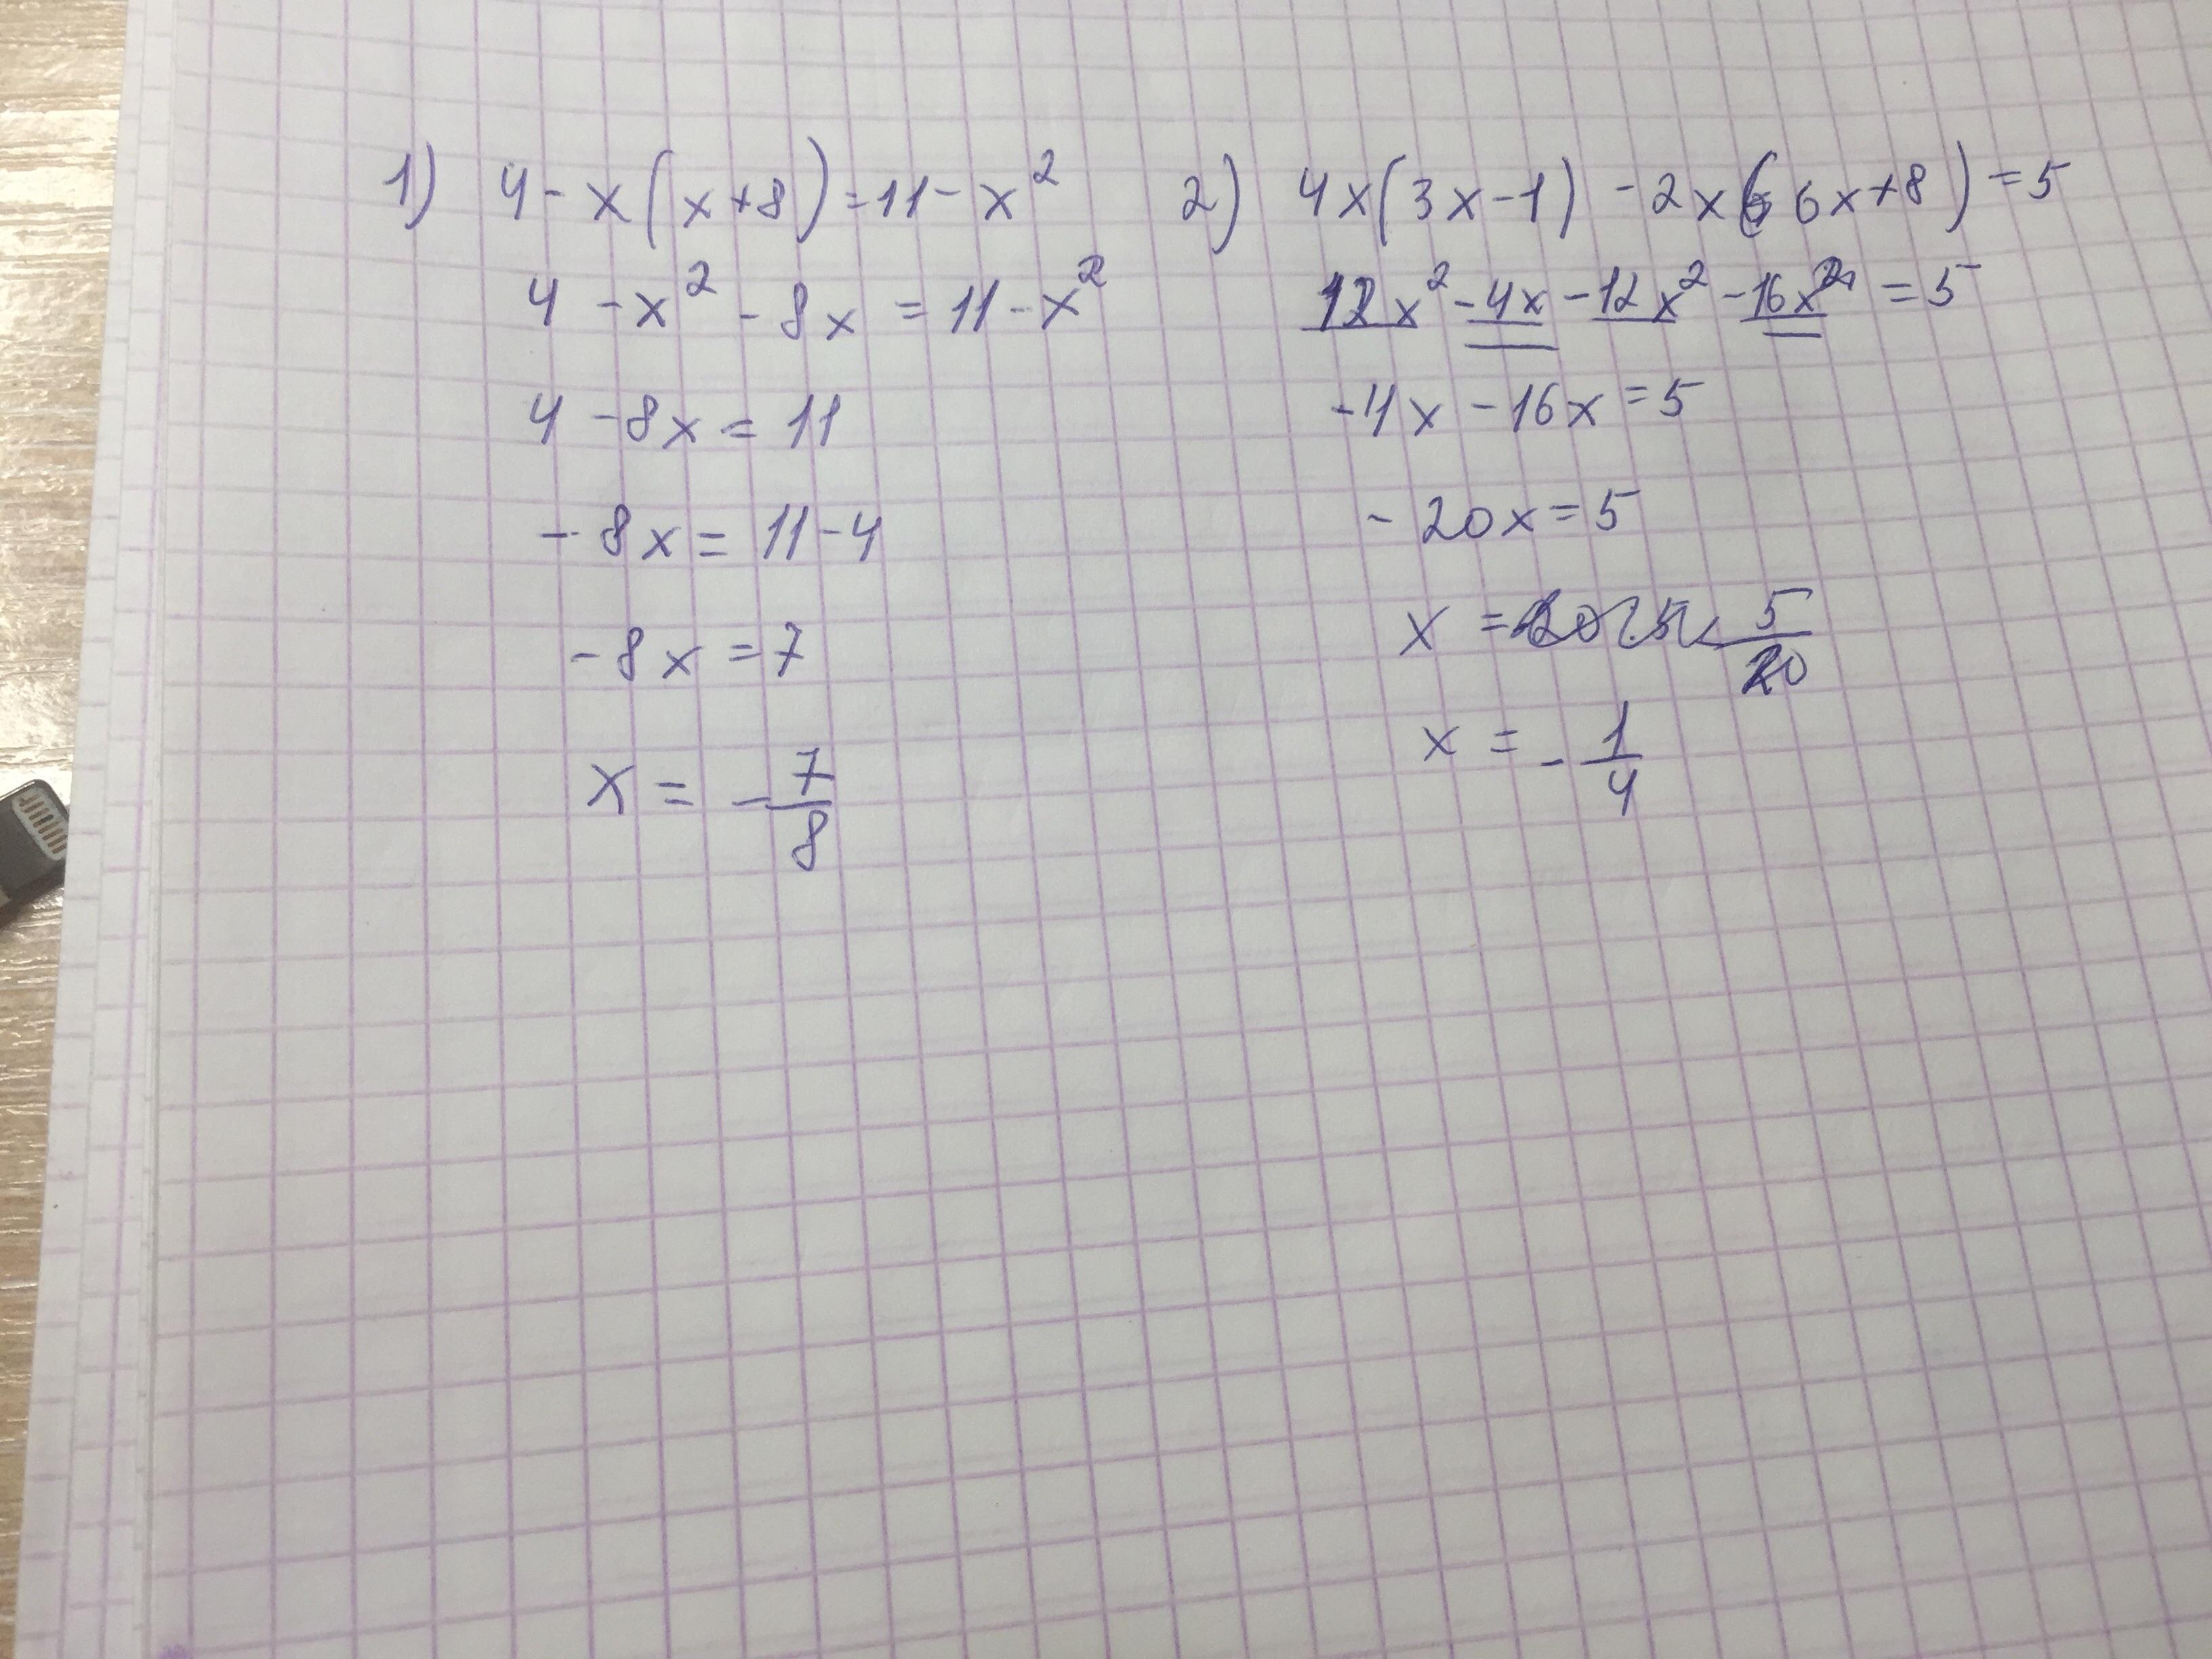 1) 4 - x(x+8) = 11 - x²
4 - x² - 8x = 11 - x²
4 - 8x = 11
- 8x = 11 - 4
- 8x = 7
x = - 7/8
2) 4x(3x-1) - 2x(6x+8) = 5
12x² - 4x - 12x² - 16x = 5
-4x - 16x = 5
- 20x = 5
x = - 5/20
x = - 1/4